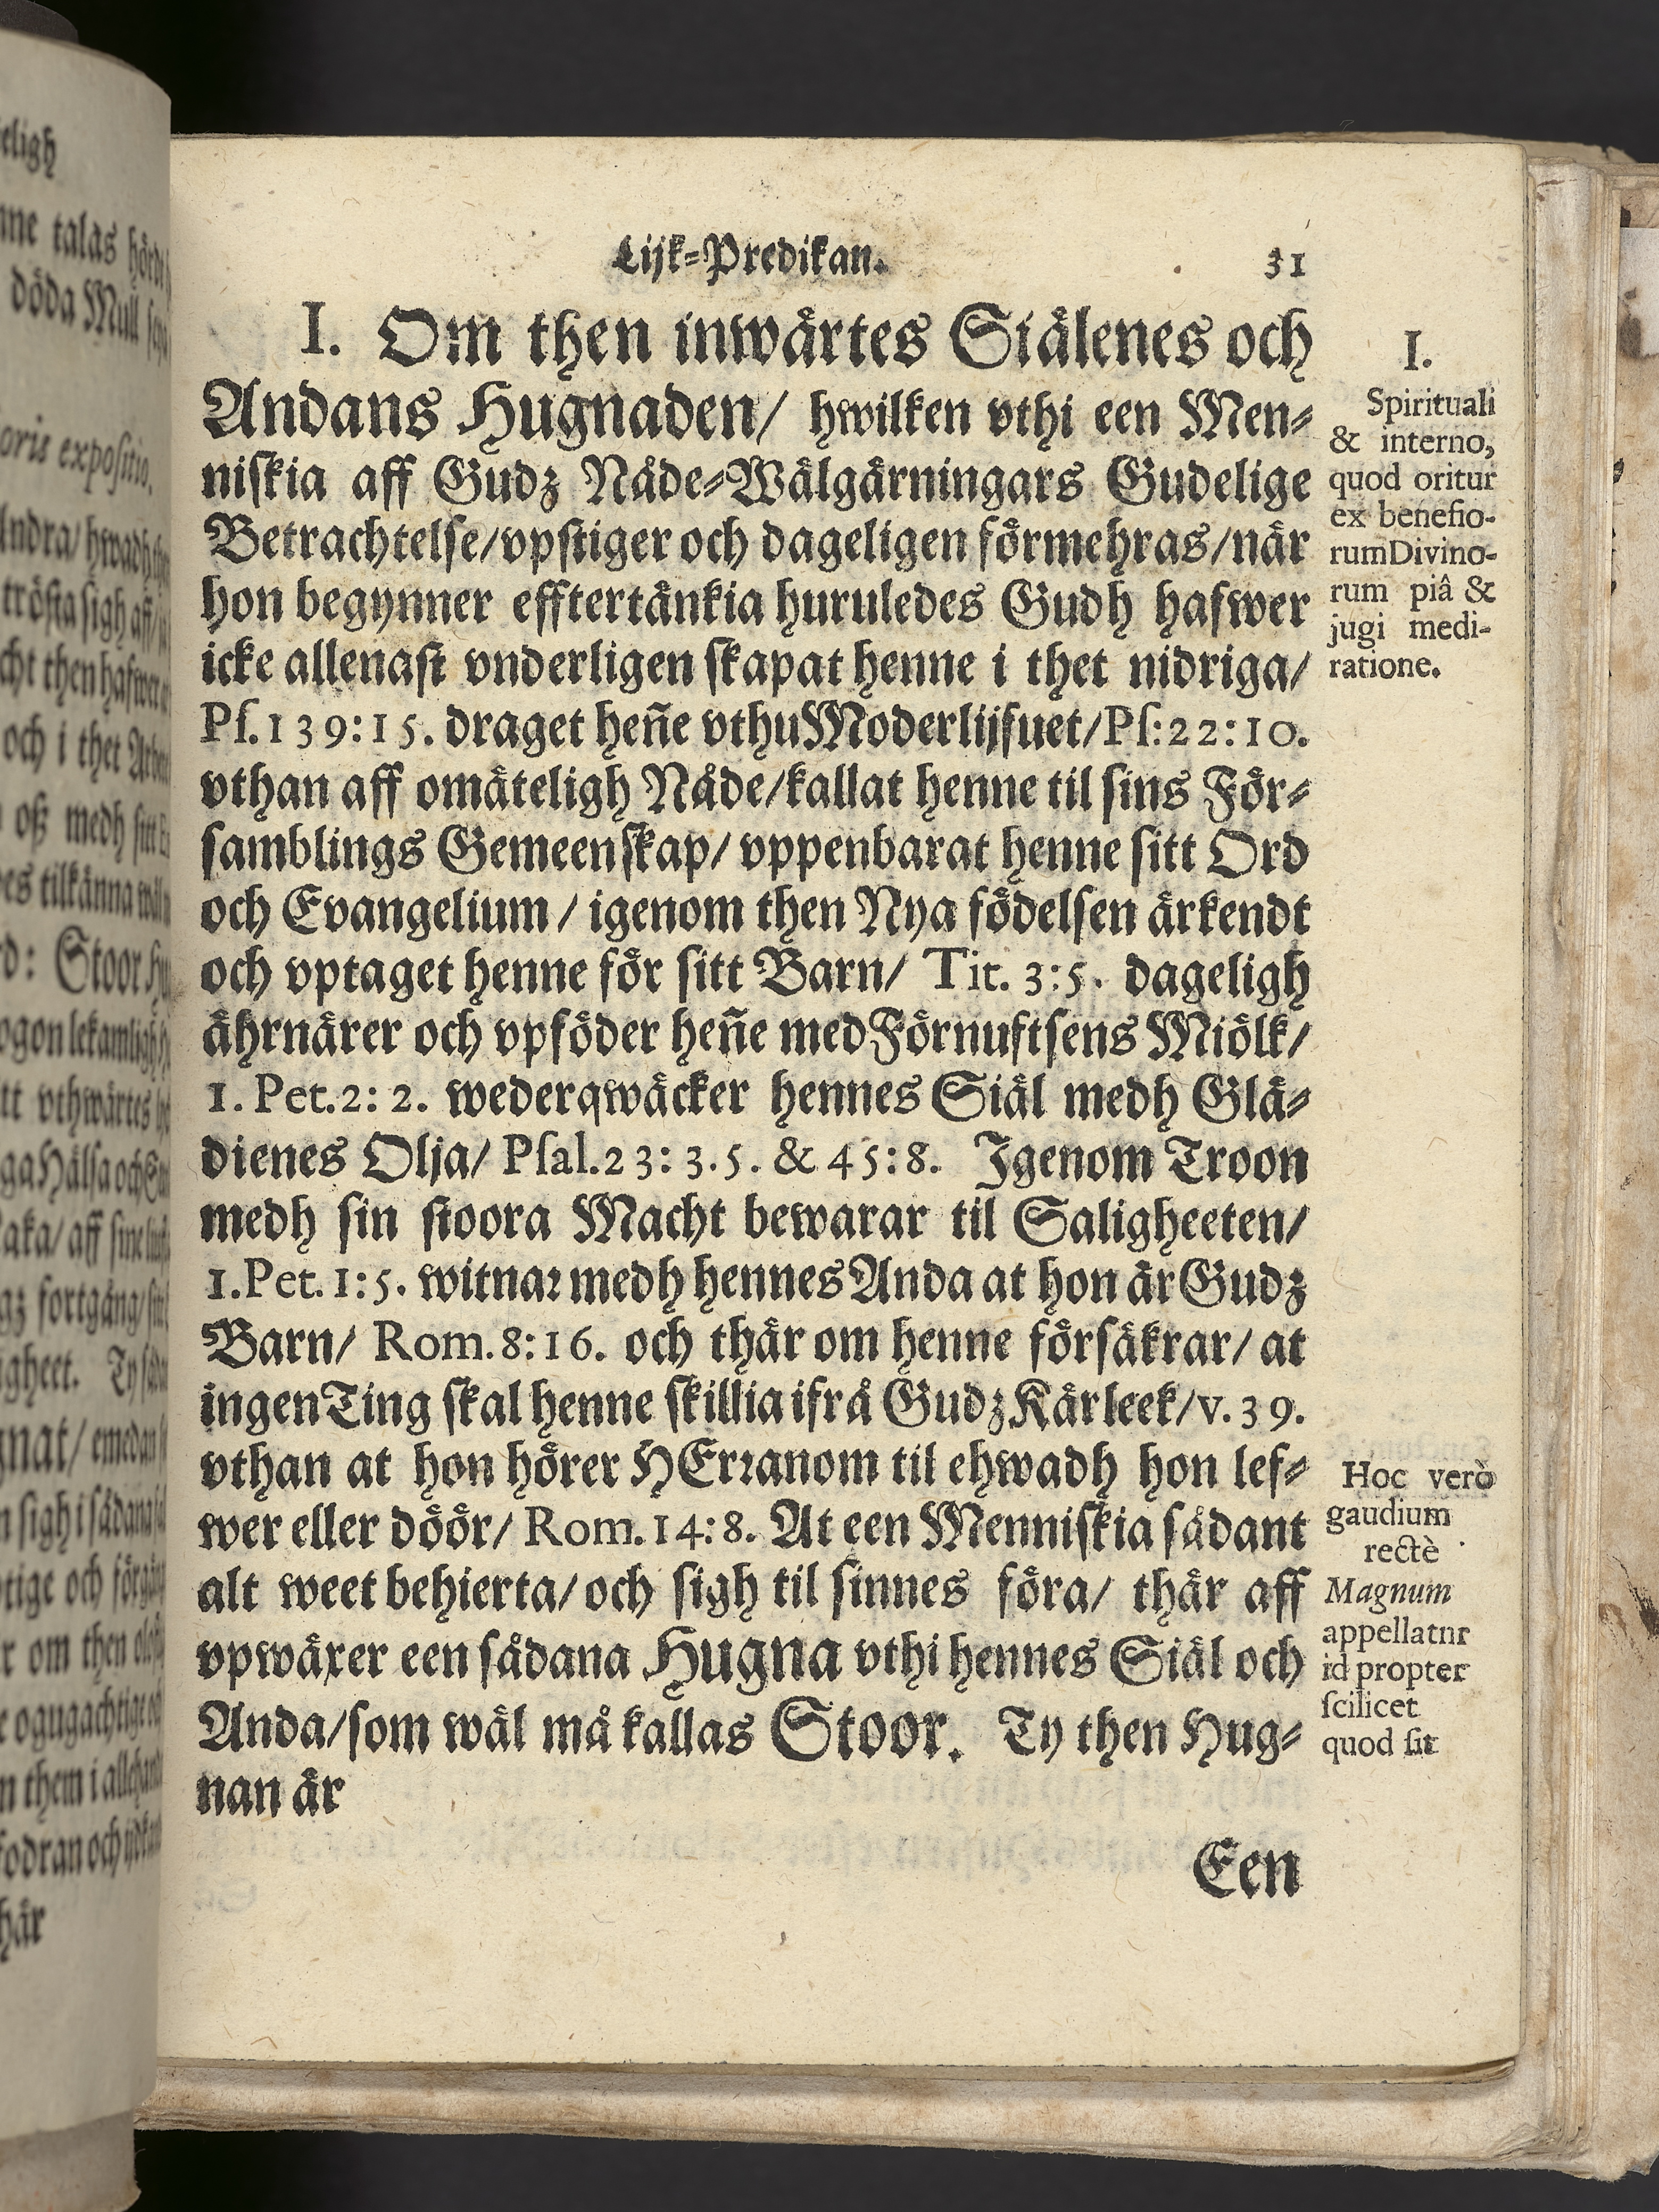 Lijk-Predikan. 31
I. Om then inwärtes Siälenes och
Andans Hugnaden/ hwilken vthi een Men-
niskia aff Gudz Nåde-Wälgärningars Gudelige
Betrachtelse/vpstiger och dageligen förmehras/när
hon begynner efftertänkia huruledes Gudh hafwer
icke allenast vnderligen skapat henne i thet nidriga/
Pſ.139:15. draget heñe vthu Moderlijfuet/Pſ:22:10.
vthan aff omäteligh Nåde/kallat henne til sins För-
samblings Gemeenskap/ vppenbarat henne sitt Ord
och Evangelium / igenom then Nya födelsen ärkendt
och vptaget henne för sitt Barn/ Tit. 3:5. dageligh
ährnärer och vpföder heñe med Förnuftsens Miölk/
1. Pet.2: 2. wederqwäcker hennes Siäl medh Glä-
dienes Olja/ Pſal.23: 3.5. & 45:8. Igenom Troon
medh sin stoora Macht bewarar til Saligheeten/
1.Pet. 1:5. witnar medh hennes Anda at hon är Gudz
Barn/ Rom.8:16. och thär om henne försäkrar/ at
ingen Ting skal henne skillia ifrå Gudz Kärleek/v.39.
vthan at hon hörer HErranom til ehwadh hon lef-
wer eller döör/ Rom.14:8. At een Menniskia sådant
alt weet behierta/ och sigh til sinnes föra/ thär aff
vpwäxer een sådana Hugna vthi hennes Siäl och
Anda/som wäl må kallas Stoor. Ty then Hug-
nan är
Een
I.
Spirituali
& interno,
quod oritur
ex benefio-
rum Divino-
rum piâ &
jugi medi-
ratione.
Hoc verò
gaudium
rectè
Magnum
appellatnr
id propter
ſcilicet
quod ſit
eligh
talas
döda Mull
oris expoſitio.
och i thet
oß medh sitt
tilkänna
Stoor
lekamligh
vthwärtes
aff
fortgång
och
om then
them i
och
här